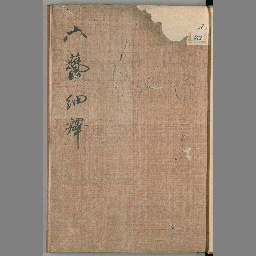 六藝細釋